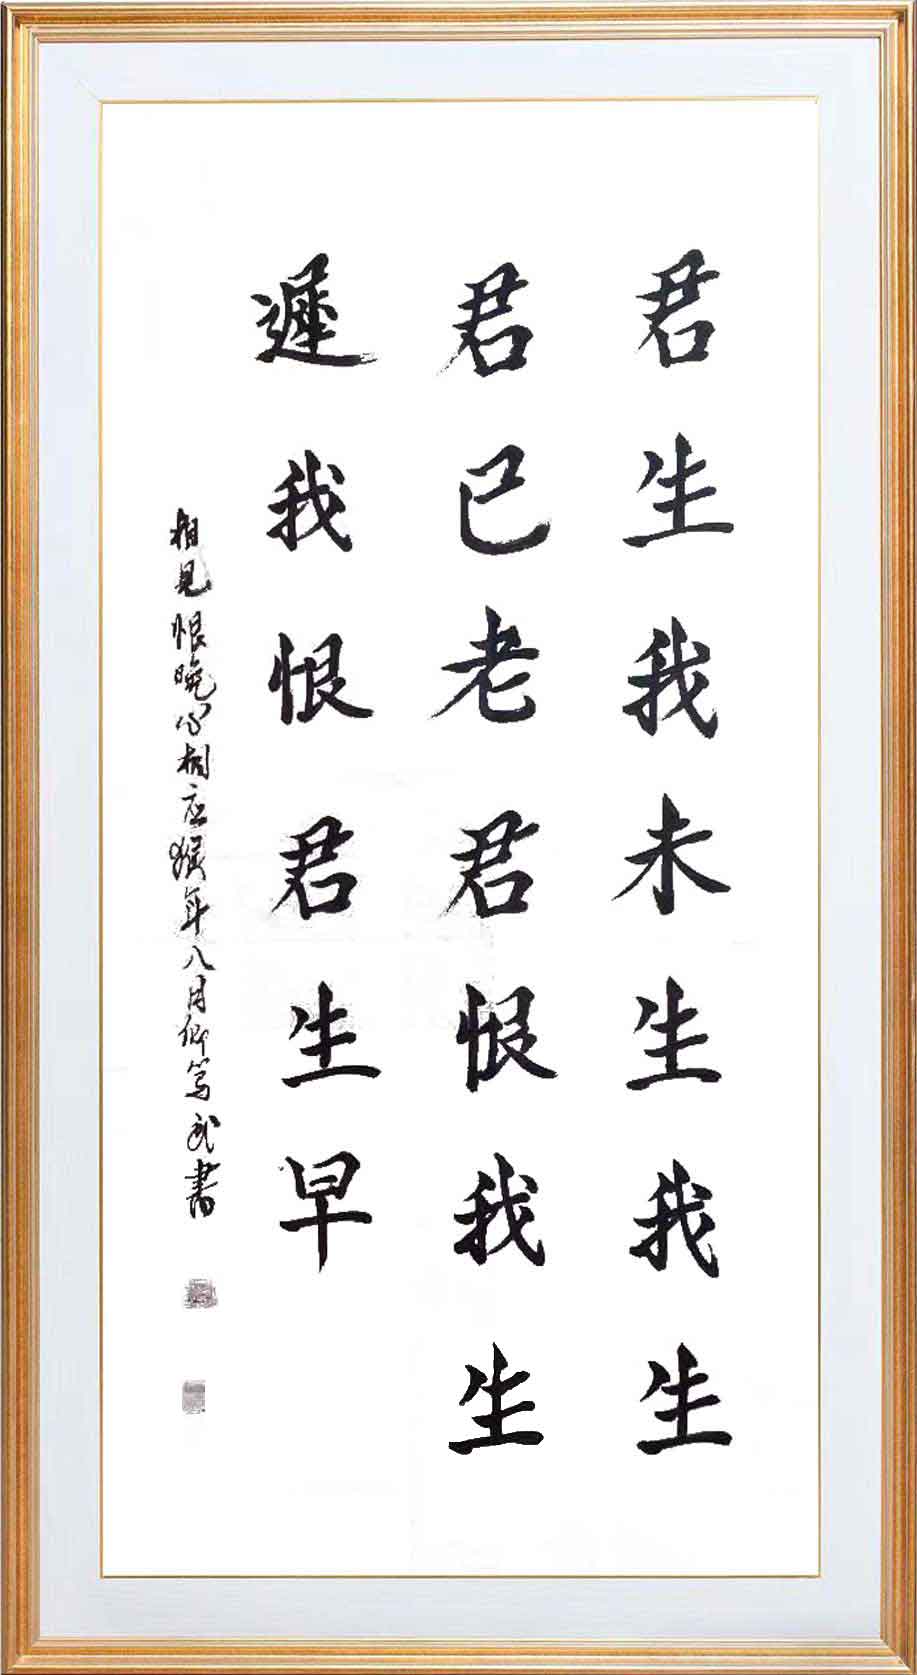 君生我未生我生
君已老君恨我生
遲我恨君生早
相見恨晚心相應猴年八月仰篤武書